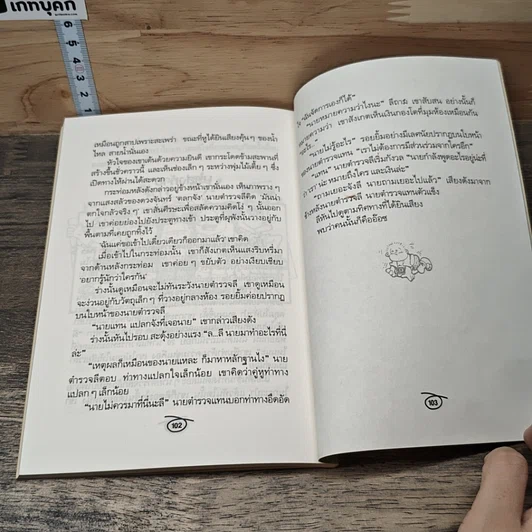 เททบุ๊คก์
6
5
4
3
2
เหมือนถูกสาปเพราะเสพเร่า ขณะที่หูได้ยินเสียงคุ้นๆ ของน้ำ
ไหล สายน้ำนั่นเอง
หัวใจของเขาเต้นด้วยความยินดี เขากระโดดข้ามสะพานที่
สร้างขึ้นชั่วคราวนี้ และเห็นช่องเล็ก ๆ ระหว่างพุ่มไม้เตี้ย ๆ ซึ่ง
เปิดทางให้ผ่านได้สะดวก
กระท่อมหลังดังกล่าวอยู่ข้างหน้าเขานั่นเอง เห็นภาพราง ๆ
จากแสงสลัวของดวงจันทร์ 'ตลกจัง' นายตำรวจลีคิด 'มันน่า
ตกใจกลัวจริง ๆ' เขาสั่นศีรษะเพื่อสลัดความคิดโง่ ๆ นั้นออก
ไป เขาค่อยย่องไปยังประตูทางเข้า ประตูที่ผุพังนั้นวางอยู่กับ
พื้นตามที่เคยถูกทิ้งไว้
'ฉันแค่ขอเข้าไปเดี๋ยวเดียวก็ออกมาแล้ว' เขาคิด
เมื่อเข้าไปในกระท่อมนั้น เขาก็สังเกตเห็นแสงริบหรี่มา
จากด้านหลังกระท่อม เขาค่อย ๆ ขยับตัว อย่างเงียบเชียบ
'อยากรู้นักว่าใครกัน'
ร่างนั้นดูเหมือนจะไม่ทันระวังนายตำรวจลี เขาดูเหมือน
จะง่วนอยู่กับวัตถุเล็ก ๆ ที่วางอยู่กลางห้อง รอยยิ้มค่อยปรากฏ
บนใบหน้าของนายตำรวจลี
"นายแทน แปลกจังที่เจอนาย" เขากล่าวเสียงดัง
ร่างนั้นหันไปรอบ สะดุ้งอย่างแรง "ล...ลี นายมาทำอะไรที่นี่
ล่ะ"
"เหตุผลก็เหมือนของนายแหละ ก็มาหาหลักฐานไง" นาย
ตำรวจลีตอบ ท่าทางแปลกใจเล็กน้อย เขาคิดว่าคู่หูท่าทาง
แปลก ๆ เล็กน้อย
"นายไม่ควรมาที่นี่นะลี" นายตำรวจแทนบอกท่าทางอึดอัด
102
"ฉันจัดการเองก็ได้"
"นายหมายความว่าไงนะ" ลีถาม เขาสับสน อย่างนั้นก็
หมายความว่า เขาสังเกตเห็นเงินกองโตที่มุมห้องเหมือนกัน
"นายไม่รู้อะไร" รอยยิ้มอย่างมีเลศนัยปรากฏบนใบหน้า
ของนายตำรวจแทน "เราไม่ต้องการมีส่วนร่วมจากใครอีก"
"แทน" นายตำรวจลีเริ่มกังวล "นายกำลังพูดอะไรอยู่น่ะที่
ว่า เรา น่ะ หมายถึงใคร และเงินล่ะ"
"ถามเยอะจังลี นายถามเยอะไปแล้ว" เสียงดังมาจาก
ข้างหลังนายตำรวจลี นายตำรวจแทนตัวแข็ง
ลีหันไปดูตามทิศทางที่ได้ยินเสียง
พบว่าคนนั้นก็คืออ๊อช
103